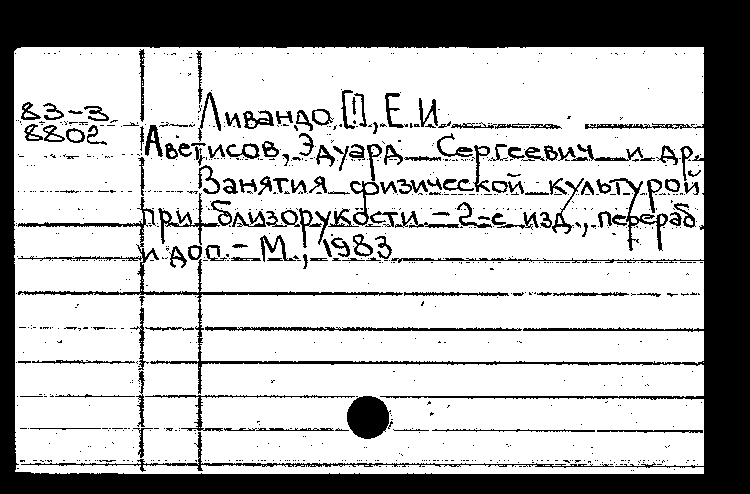 83-3
8802
Ливандо [!], Е. И.
Аветисов, Эдуард Сергеевич и др.
Занятия физической культурой
при близорукости. - 2-е изд., перераб.
и доп. - М., 1983